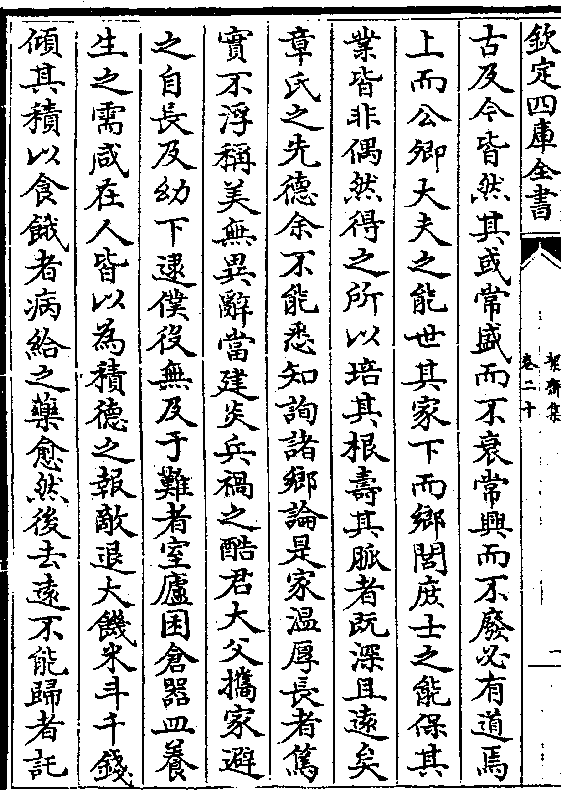 欽定四庫全書
絜齋集
卷二十
一
古及今皆然其或常盛而不衰常興而不廢必有道焉
上而公卿大夫之能世其家下而鄉閭庶士之能保其
業皆非偶然得之所以培其根壽其脈者既深且遠矣
章氏之先德余不能悉知詢諸鄉論是家温厚長者篤
實不浮稱美無異辭當建炎兵禍之酷君大父攜家避
之自長及幼下逮僕役無及于難者室廬囷倉器皿養
生之需咸在人皆以為積德之報敵退大饑米斗千錢
傾其積以食餓者病給之藥愈然後去逺不能歸者託